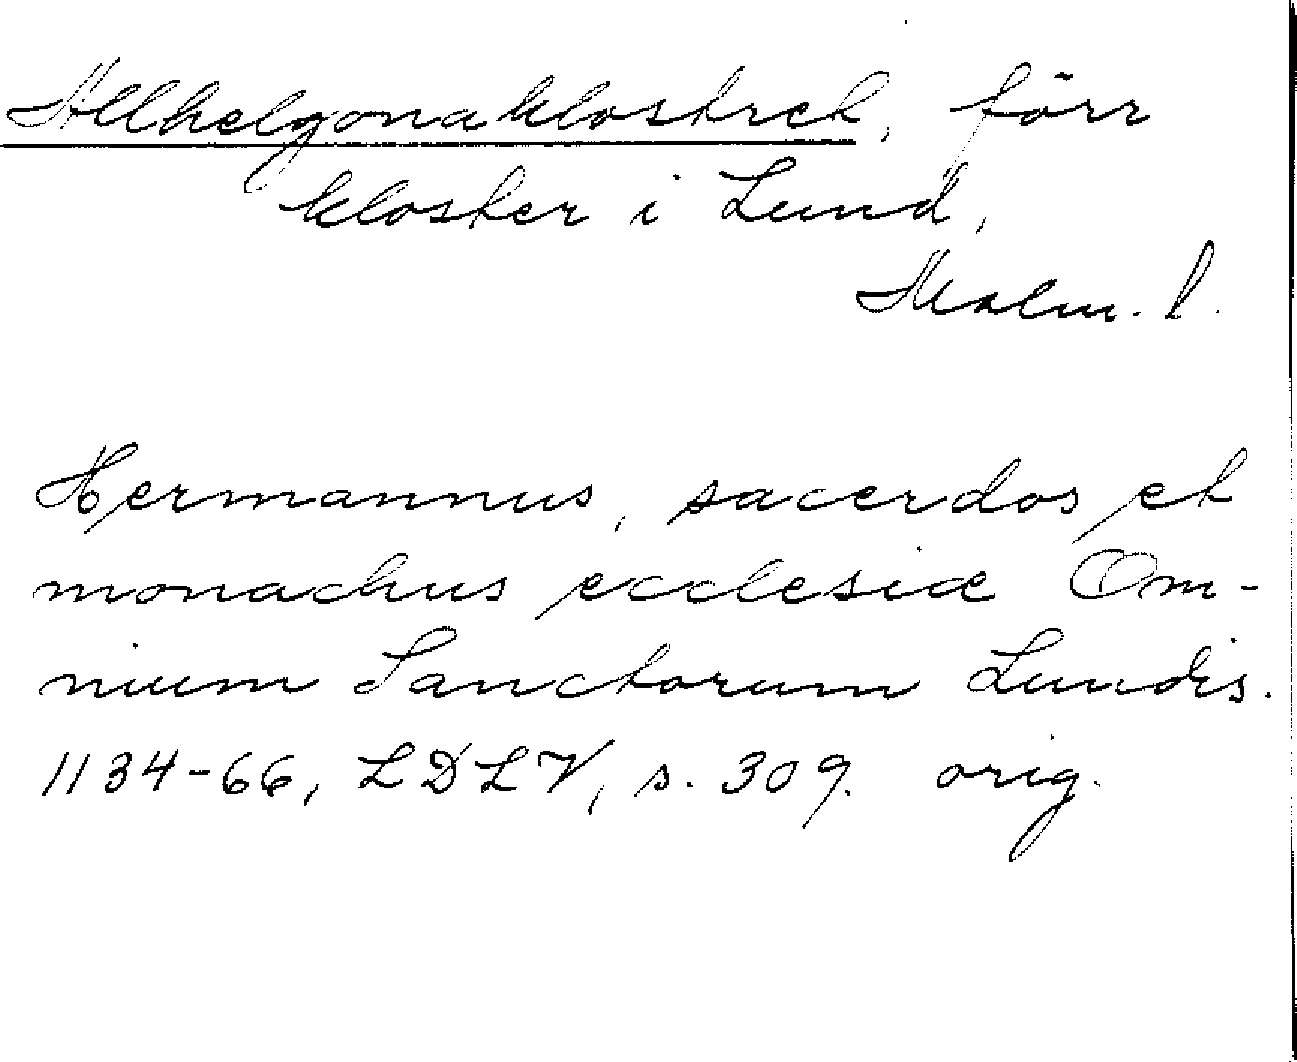 Allhelgonaklostret, förr
kloster i Lund,
Malm. l.
Hermannus, sacerdos et
monachus ecclesiæ Om-
nium Sanctorum Lundis.
1134-66, LDLV, s. 309. orig.